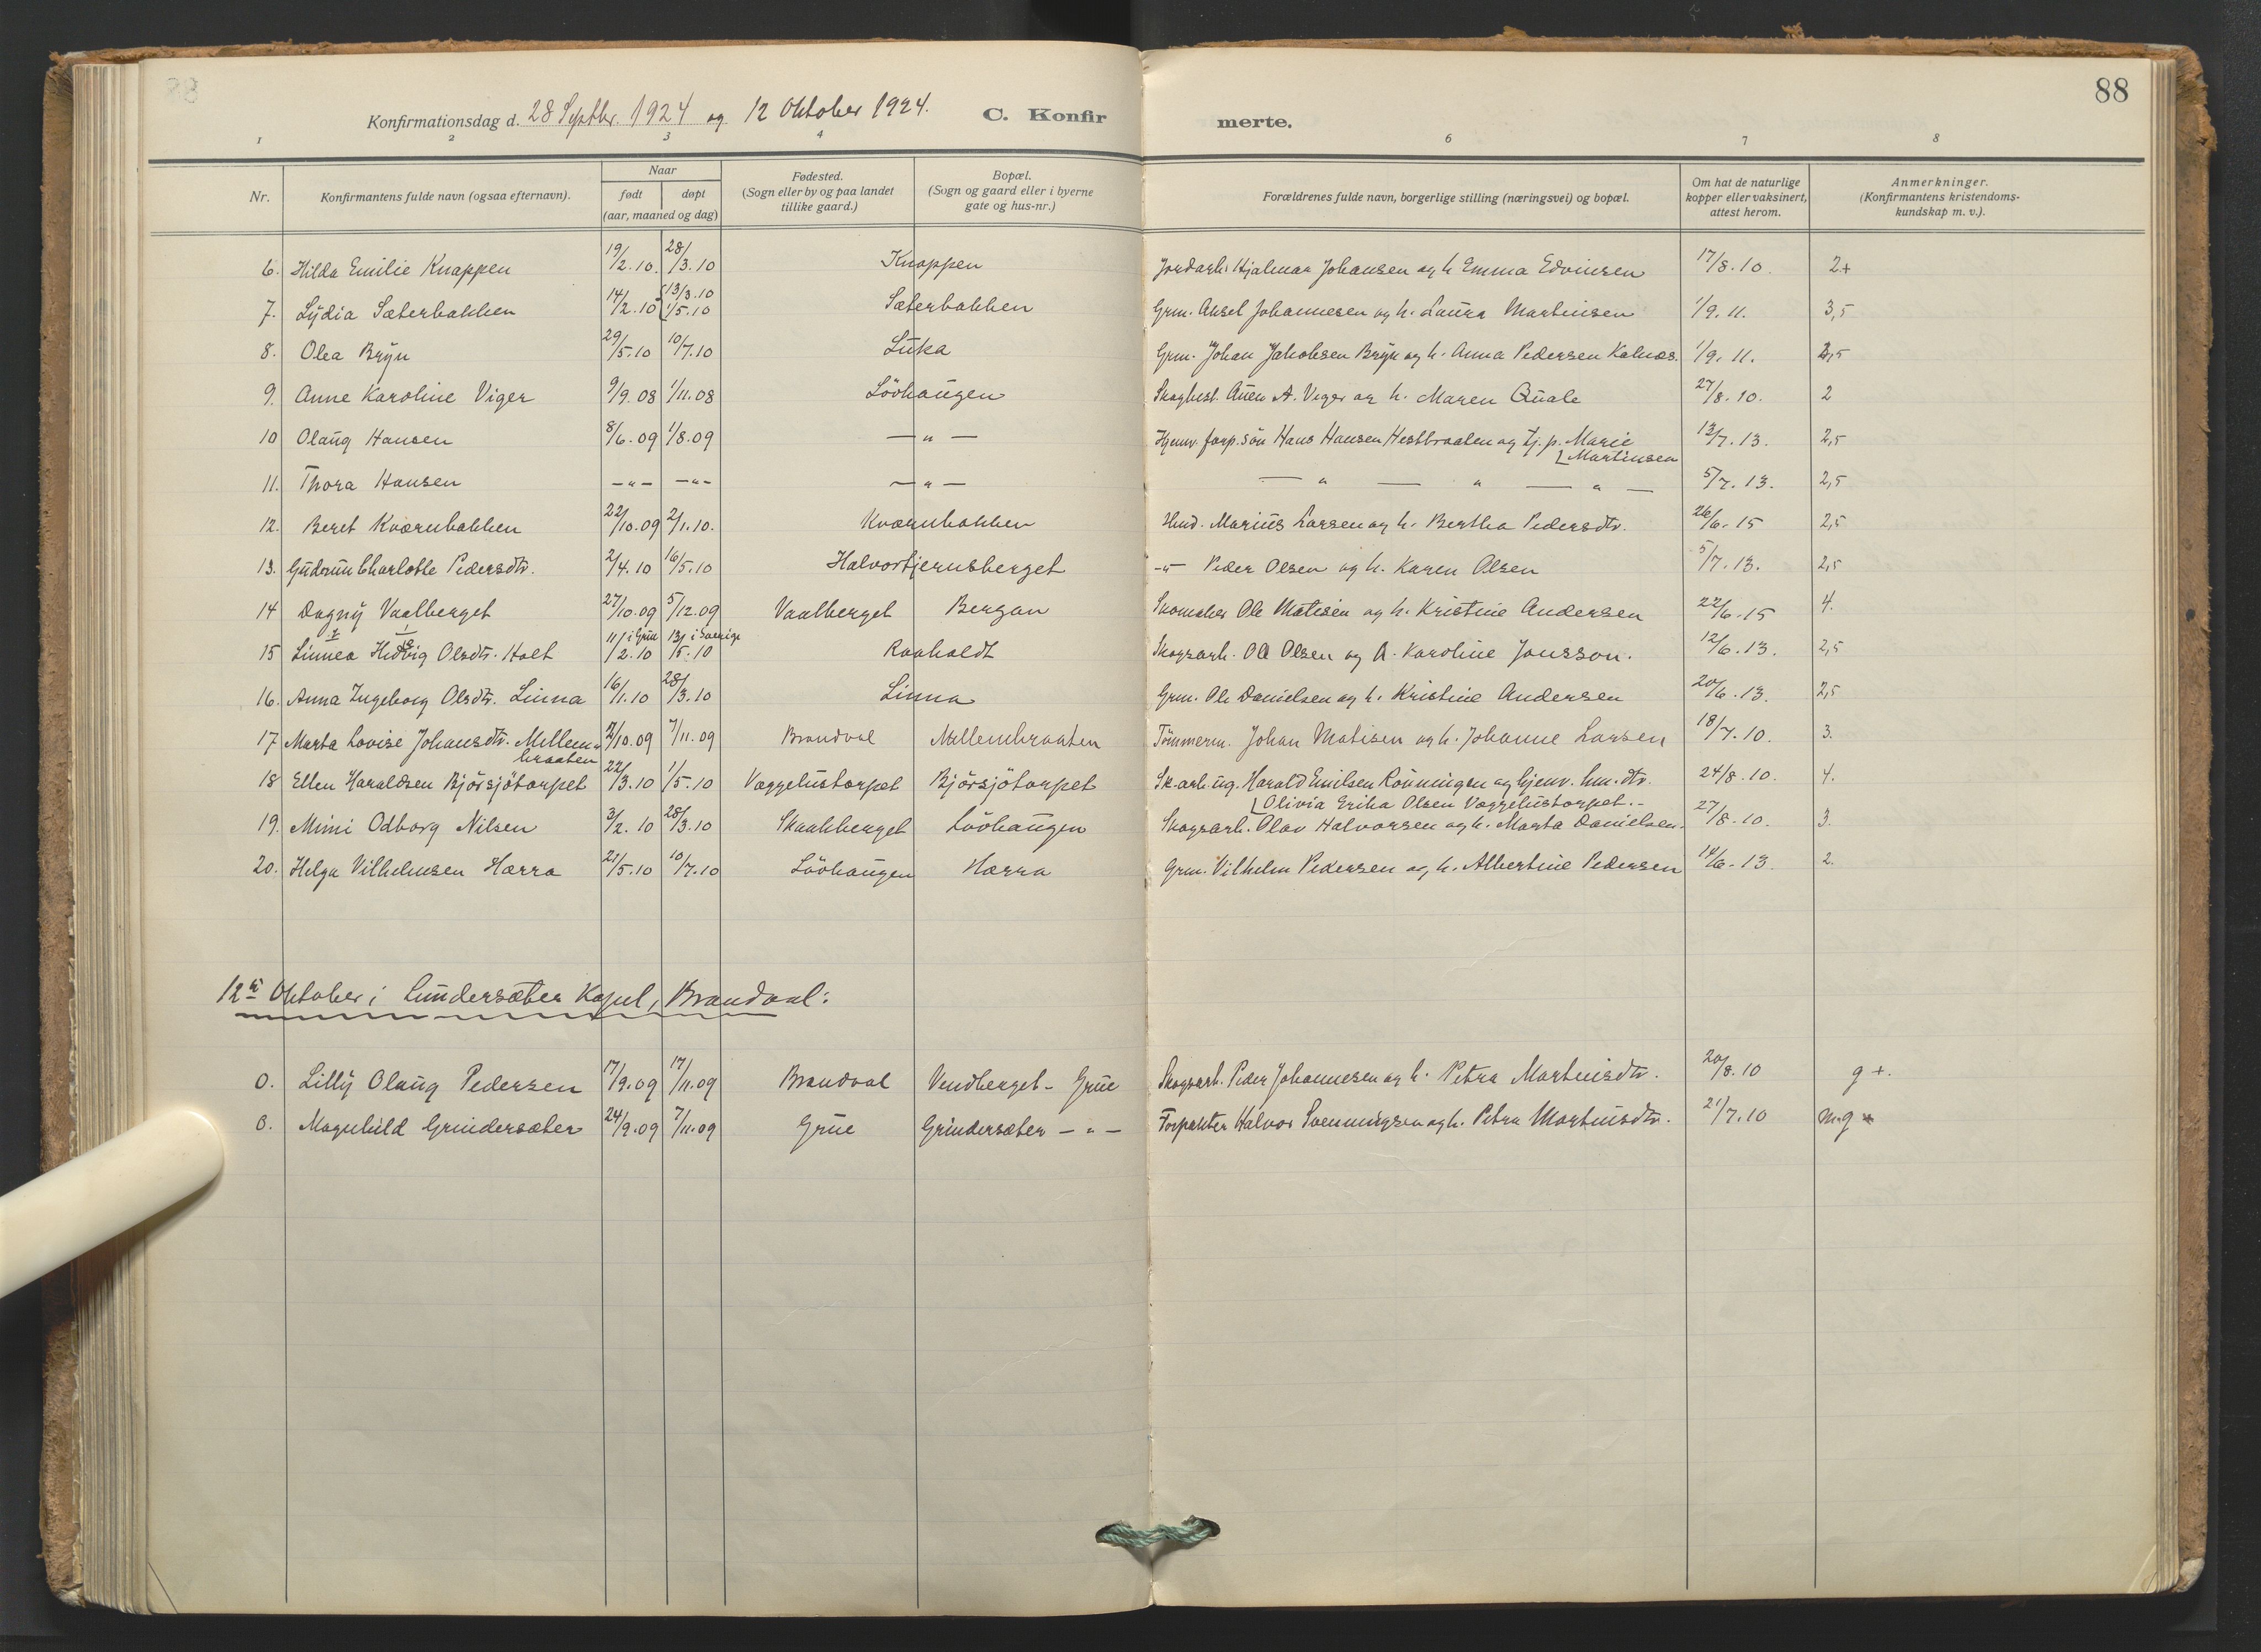 88
Konfirmationsdag d. 28 Septbr. 1924 og 12 Oktober 1924. C. Konfirmerte.
1 2 3 4 6 7 8
Nr. Konfirmantens fulde navn (ogsaa efternavn). Naar født døpt (aar, maaned og dag) Fødested. (Sogn eller by og paa landet tillike gaard.) Bopæl. (Sogn og gaard eller i byerne gate og hus-nr.) Forældrenes fulde navn, borgerlige stilling (næringsvei) og bopæl. Om hat de naturlige kopper eller vaksinert, attest herom. Anmerkninger. (Konfirmantens kristendomskundskap m. v.).
6. Hilda Emilie Knappen 19/2.10. 28/3.10 Knappen Jordarb. Hjalmar Johansen og h. Emma Edvinsen 17/8.10. 2+
7. Lydia Sæterbakken 14/2.10 {13/3.10 1/5.10 Sæterbakken Grm. Aksel Johannesen og h. Laura Martinsen 1/9.11. 3,5
8. Olea Bryn 29/5.10 10/7.10 Luka Grm. Johan Jakobsen Bryn og h. Anna Pedersen Kalnæs. 1/9.11. 2,5
9. Anne Karoline Viger 9/9.08 1/11.08 Lövhaugen Skogbest. Auen A. Viger og h. Maren Quale 27/8.10. 2
10 Olaug Hansen 8/6.09 1/8.09 — " — Hjemv. forp. sön Hans Hansen Hestbraaten og tj.p. Marie 13/7.13. 2,5
Martinsen
11. Thora Hansen — " — — " — — " — — " — " — " — 5/7.13. 2,5
12. Beret Kværnbakken 22/10.09 2/1.10. Kværnbakken Husd. Marius Larsen og h. Bertha Pedersdtr. 26/6.15 2,5
13. Gudrun Charlotte Pedersdtr. 2/4.10 16/5.10 Halvortjernsberget — " — Peder Olsen og h. Karen Olsen 5/7.13. 2,5
14 Dagny Vaalberget 27/10.09 5/12.09 Vaalberget Bergan Skomaker Ole Matisen og h. Kristine Andersen 22/6.15 4.
15 Linnea Hedvig Olsdtr. Holt 11/2.10 i Grue 13/5.10 i Sverige Raaholdt Skogsarb. Ole Olsen og h. Karoline Jonsson. 12/6.13. 2,5
16. Anna Ingeborg Olsdtr. Linna 16/1.10 28/3.10 Linna Grm. Ole Danielsen og h. Kristine Andersen 20/6.13. 2,5
17 Marta Lovise Johansdtr. Mellem- 2/10.09 7/11.09 Brandval Mellembraaten Tömmerm. Johan Matisen og h. Johanne Larsen 18/7.10. 3.
braaten
18 Ellen Haraldsen Björsjötorpet 22/3.10 1/5.10 Væggelustorpet Björsjötorpet Sk.arb. ug. Harald Emilsen Rönningen og hjemv. hm. dtr. 24/8.10. 4.
Olivia Erika Olsen Væggelustorpet.
19. Mimi Odborg Nilsen 3/2.10 28/3.10 Skaakberget Lövhaugen Skogsarb. Olav Halvorsen og h. Marta Danielsen. 27/8.10. 3.
20. Helga Vilhelmsen Hærra 21/5.10 10/7.10 Lövhaugen Hærra Grm. Vilhelm Pedersen og h. Albertine Pedersen 14/6.13. 2.
12te Oktober i Lundersæter Kapel, Brandval:
0. Lilly Olaug Pedersen 17/9.09 17/11.09 Brandval Vendberget - Grue Skogsarb. Peder Johannesen og h. Petra Martinsdtr. 20/8.10 g+.
0. Magnhild Grindersæter 24/9.09 7/11.09 Grue Grindersæter — " — Forpakter Halvor Svenningsen og h. Petra Martinsdtr. 21/7.10 m.g